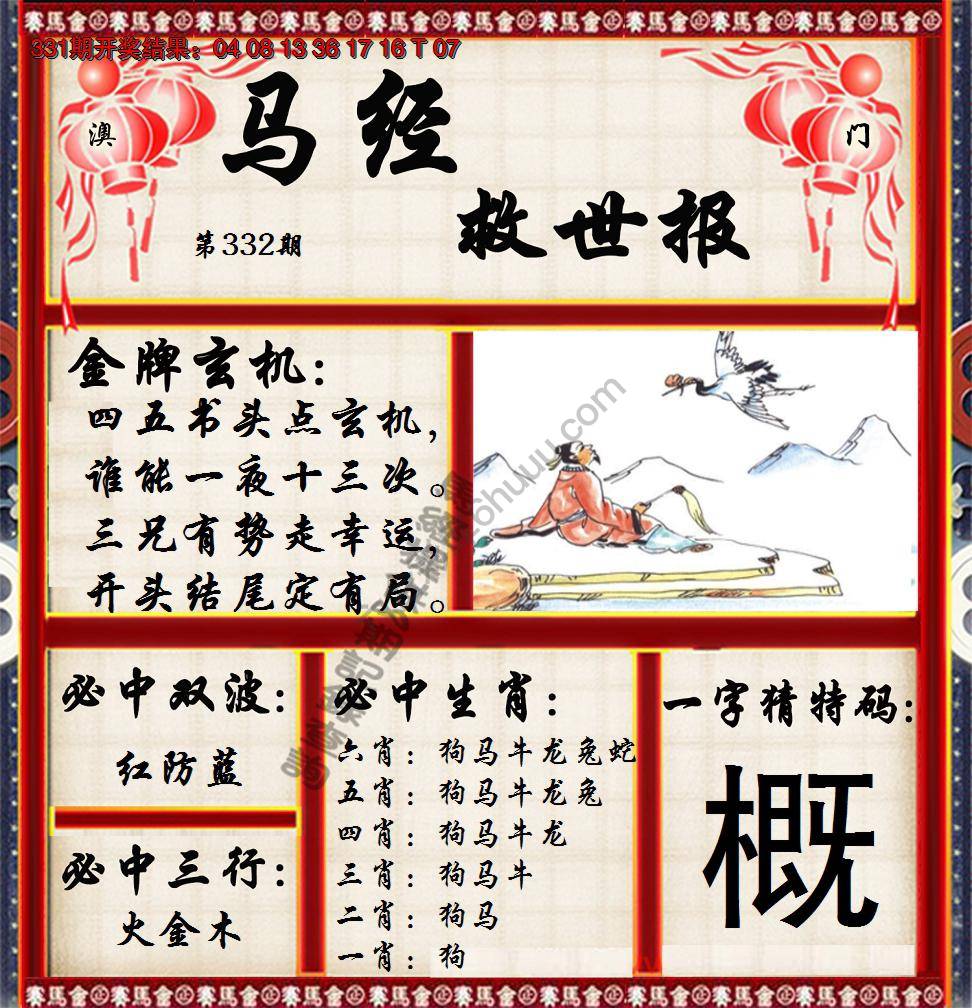 331期开奖结果：04 08 13 36 17 16 T 07
澳
门
马经
救世报
第332期
金牌玄机：
四五书头点玄机，
谁能一夜十三次。
三兄有势走幸运，
开头结尾定有局。
必中双波：
红防蓝
必中三行：
火金木
必中生肖：
六肖：狗马牛龙兔蛇
五肖：狗马牛龙兔
四肖：狗马牛龙
三肖：狗马牛
二肖：狗马
一肖：狗
一字猜特码：
概